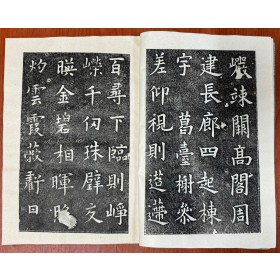 巖竦闕高閣周
建長廊四起棟
宇葛臺榭參
差仰視則迢遰
百尋下臨則崢
嶸千仞珠壁交
暎金碧相暉照
灼雲霞蔽虧日